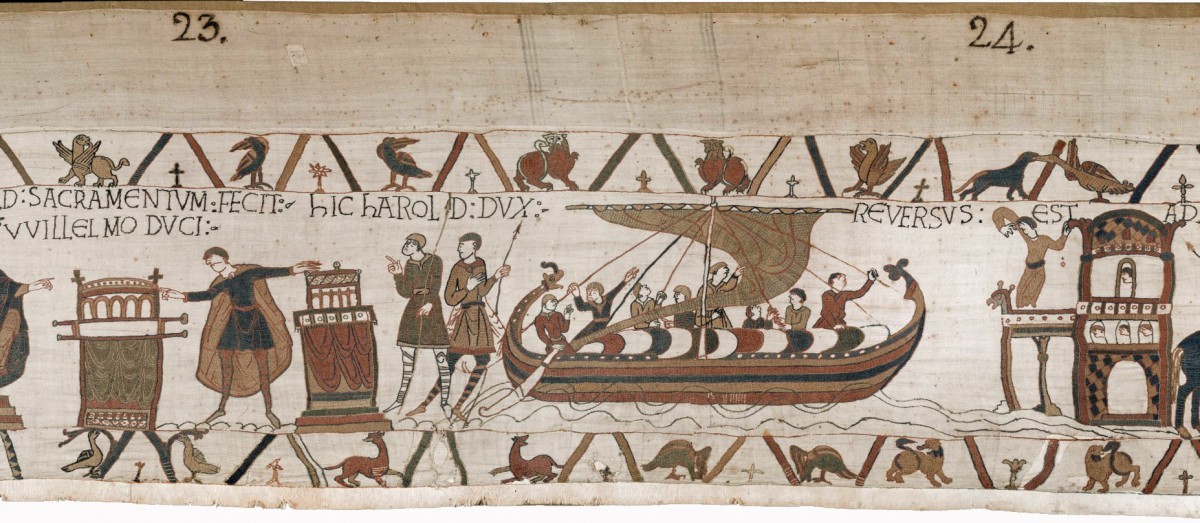 23. 24.
D : SACRAMENTVM : FECIT :- hIC hAROLD : DVX :- REVERSVS : EST AD
VVILLELMO DVCI :-